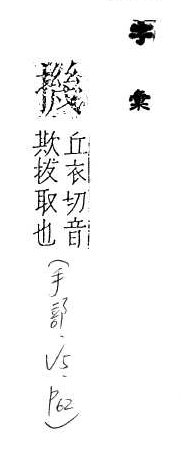 字彙
丘衣切音
欺拔取也
(手部.V5.P62)